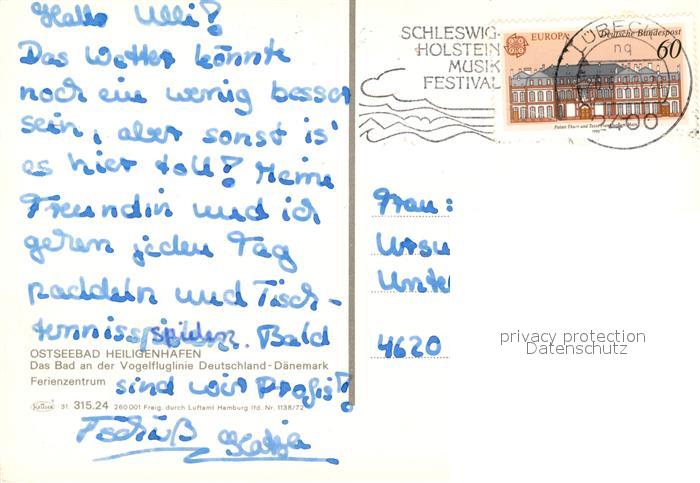 Hallo Ulli!
Das Wetter könnte
noch ein wenig besser
sein, aber sonst is'
es hier toll! Meine
Freundin und ich
gehen jeden Tag
paddeln und Tisch-
tennisspielen. Bald
OSTSEEBAD HEILIGENHAFEN
Das Bad an der Vogelfluglinie Deutschland-Dänemark
Ferienzentrum
sind wir Profis!
Krüger 31 315.24 260 001 Freig. durch Luftamt Hamburg lfd. Nr. 1138/72
Tschüß Katja
SCHLESWIG-
HOLSTEIN
MUSIK
FESTIVAL
EUROPA Deutsche Bundespost
60
Palais Thurn und Taxis
1990
LÜBECK
nq
2400
Frau:
Ursu
Unte
4620
privacy protection
Datenschutz